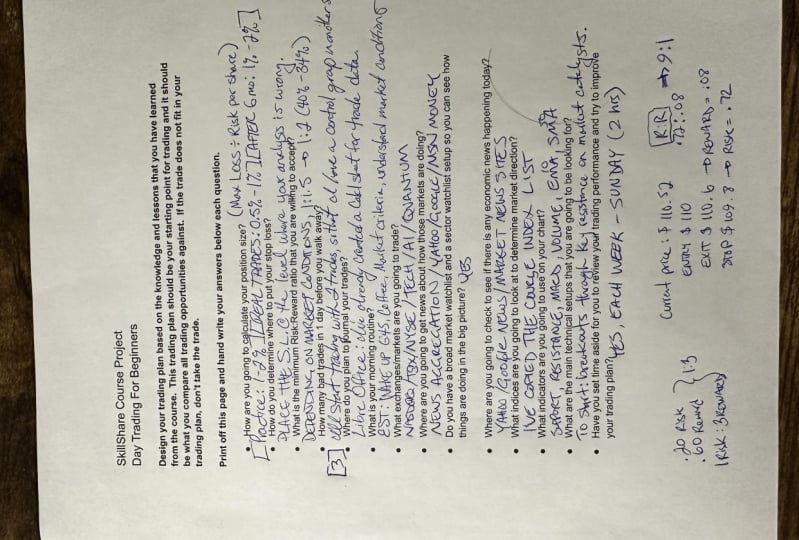 SkillShare Course Project
Day Trading For Beginners
Design your trading plan based on the knowledge and lessons that you have learned
from the course. This trading plan should be your starting point for trading and it should
be what you compare all trading opportunities against. If the trade does not fit in your
trading plan, don't take the trade.
Print off this page and hand write your answers below each question.
• How are you going to calculate your position size? (Max Loss ÷ Risk per share)
[Practice: 1-2% ][DEAL TRADES: 0.5% - 1% ][AFTER 6 mo: 1% - 2%]
• How do you determine where to put your stop loss?
PLACE THE S.L. @ the level where your analysis is wrong.
• What is the minimum Risk:Reward ratio that you are willing to accept?
DEPENDING ON MARKET CONDITIONS, 1:1.5 → 1:2 (40% - 34%)
• How many bad trades in 1 day before you walk away?
[3] I'll start trading with 2 trades, so that I have a control group
• Where do you plan to journal your trades?
Libre Office: I've already created a Calc sheet for trade data.
• What is your morning routine?
EST: WAKE UP 6:45, Coffee, Market criteria, understand market conditions
• What exchanges/markets are you going to trade?
NASDAQ/TSX/NYSE/TECH/AI/QUANTUM
• Where are you going to get news about how those markets are doing?
NEWS AGGREGATION/YAHOO/GOOGLE/MSN MONEY
• Do you have a broad market watchlist and a sector watchlist setup so you can see how
things are doing in the big picture? YES
• Where are you going to check to see if there is any economic news happening today?
YAHOO/GOOGLE NEWS/MARKET NEWS SITES
• What indices are you going to look at to determine market direction?
I'VE COPIED THE COURSE INDEX LIST
• What indicators are you going to use on your chart?
SUPPORT, RESISTANCE, MACD, VOLUME, EMA, SMA
• What are the main technical setups that you are going to be looking for?
To start: breakouts through key resistance on market catalysts.
• Have you set time aside for you to review your trading performance and try to improve
your trading plan? YES, EACH WEEK - SUNDAY (2 hrs)
Current price: $ 116.52
ENTRY $ 110
EXIT $ 110.6 → REWARD = .08
STOP $ 109.8 → RISK = .72
R:R
.72:.08 → 9:1
.20 Risk
.60 Reward } 1:3
1 Risk : 3 REWARDS